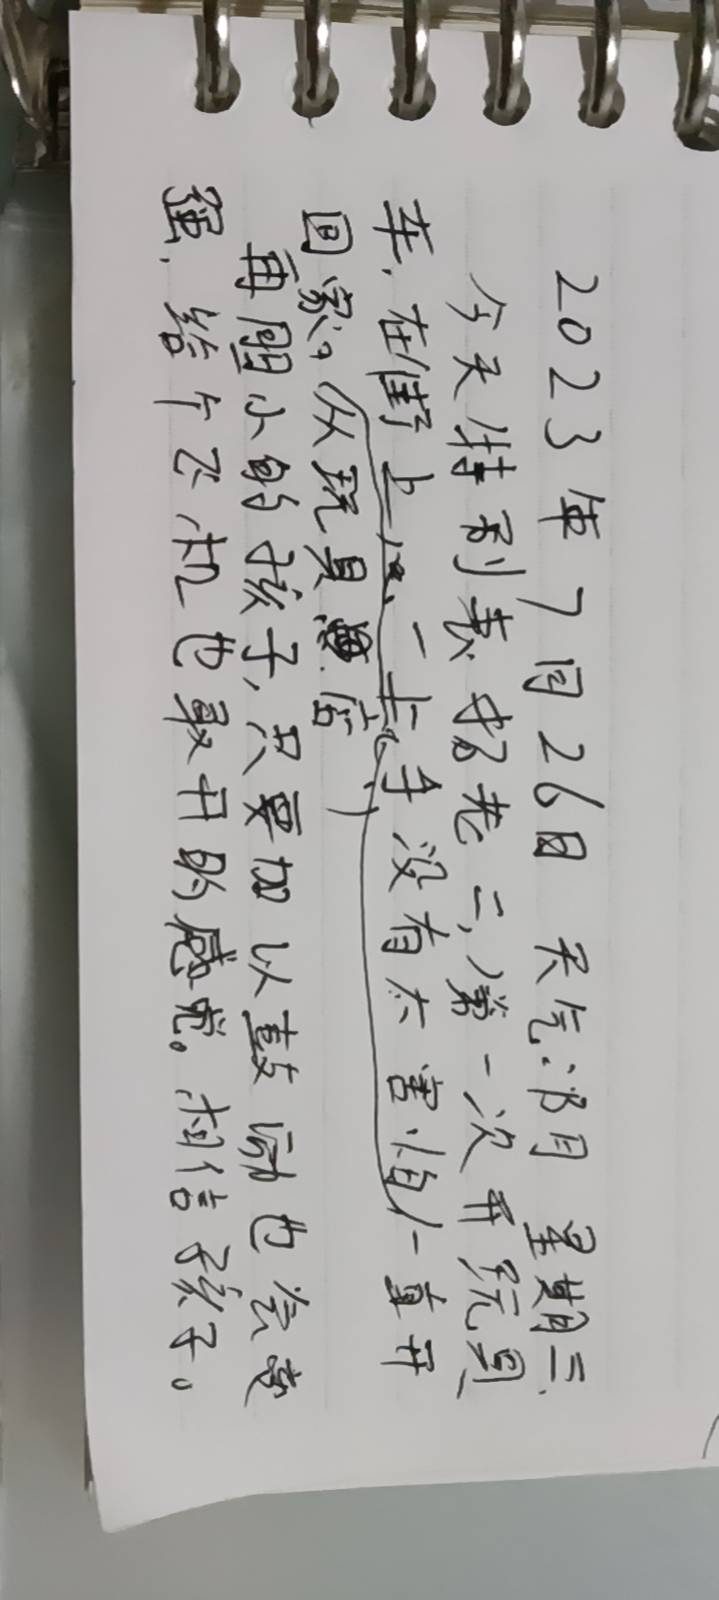 2023年7月26日 天气:阴 星期三
今天特别表扬老二,第一次开玩具
车,在街上,一上手没有太害怕一直开
回家。从玩具店
再胆小的孩子,只要加以鼓励也会变
强,给个飞机也敢开的感觉。相信孩子。